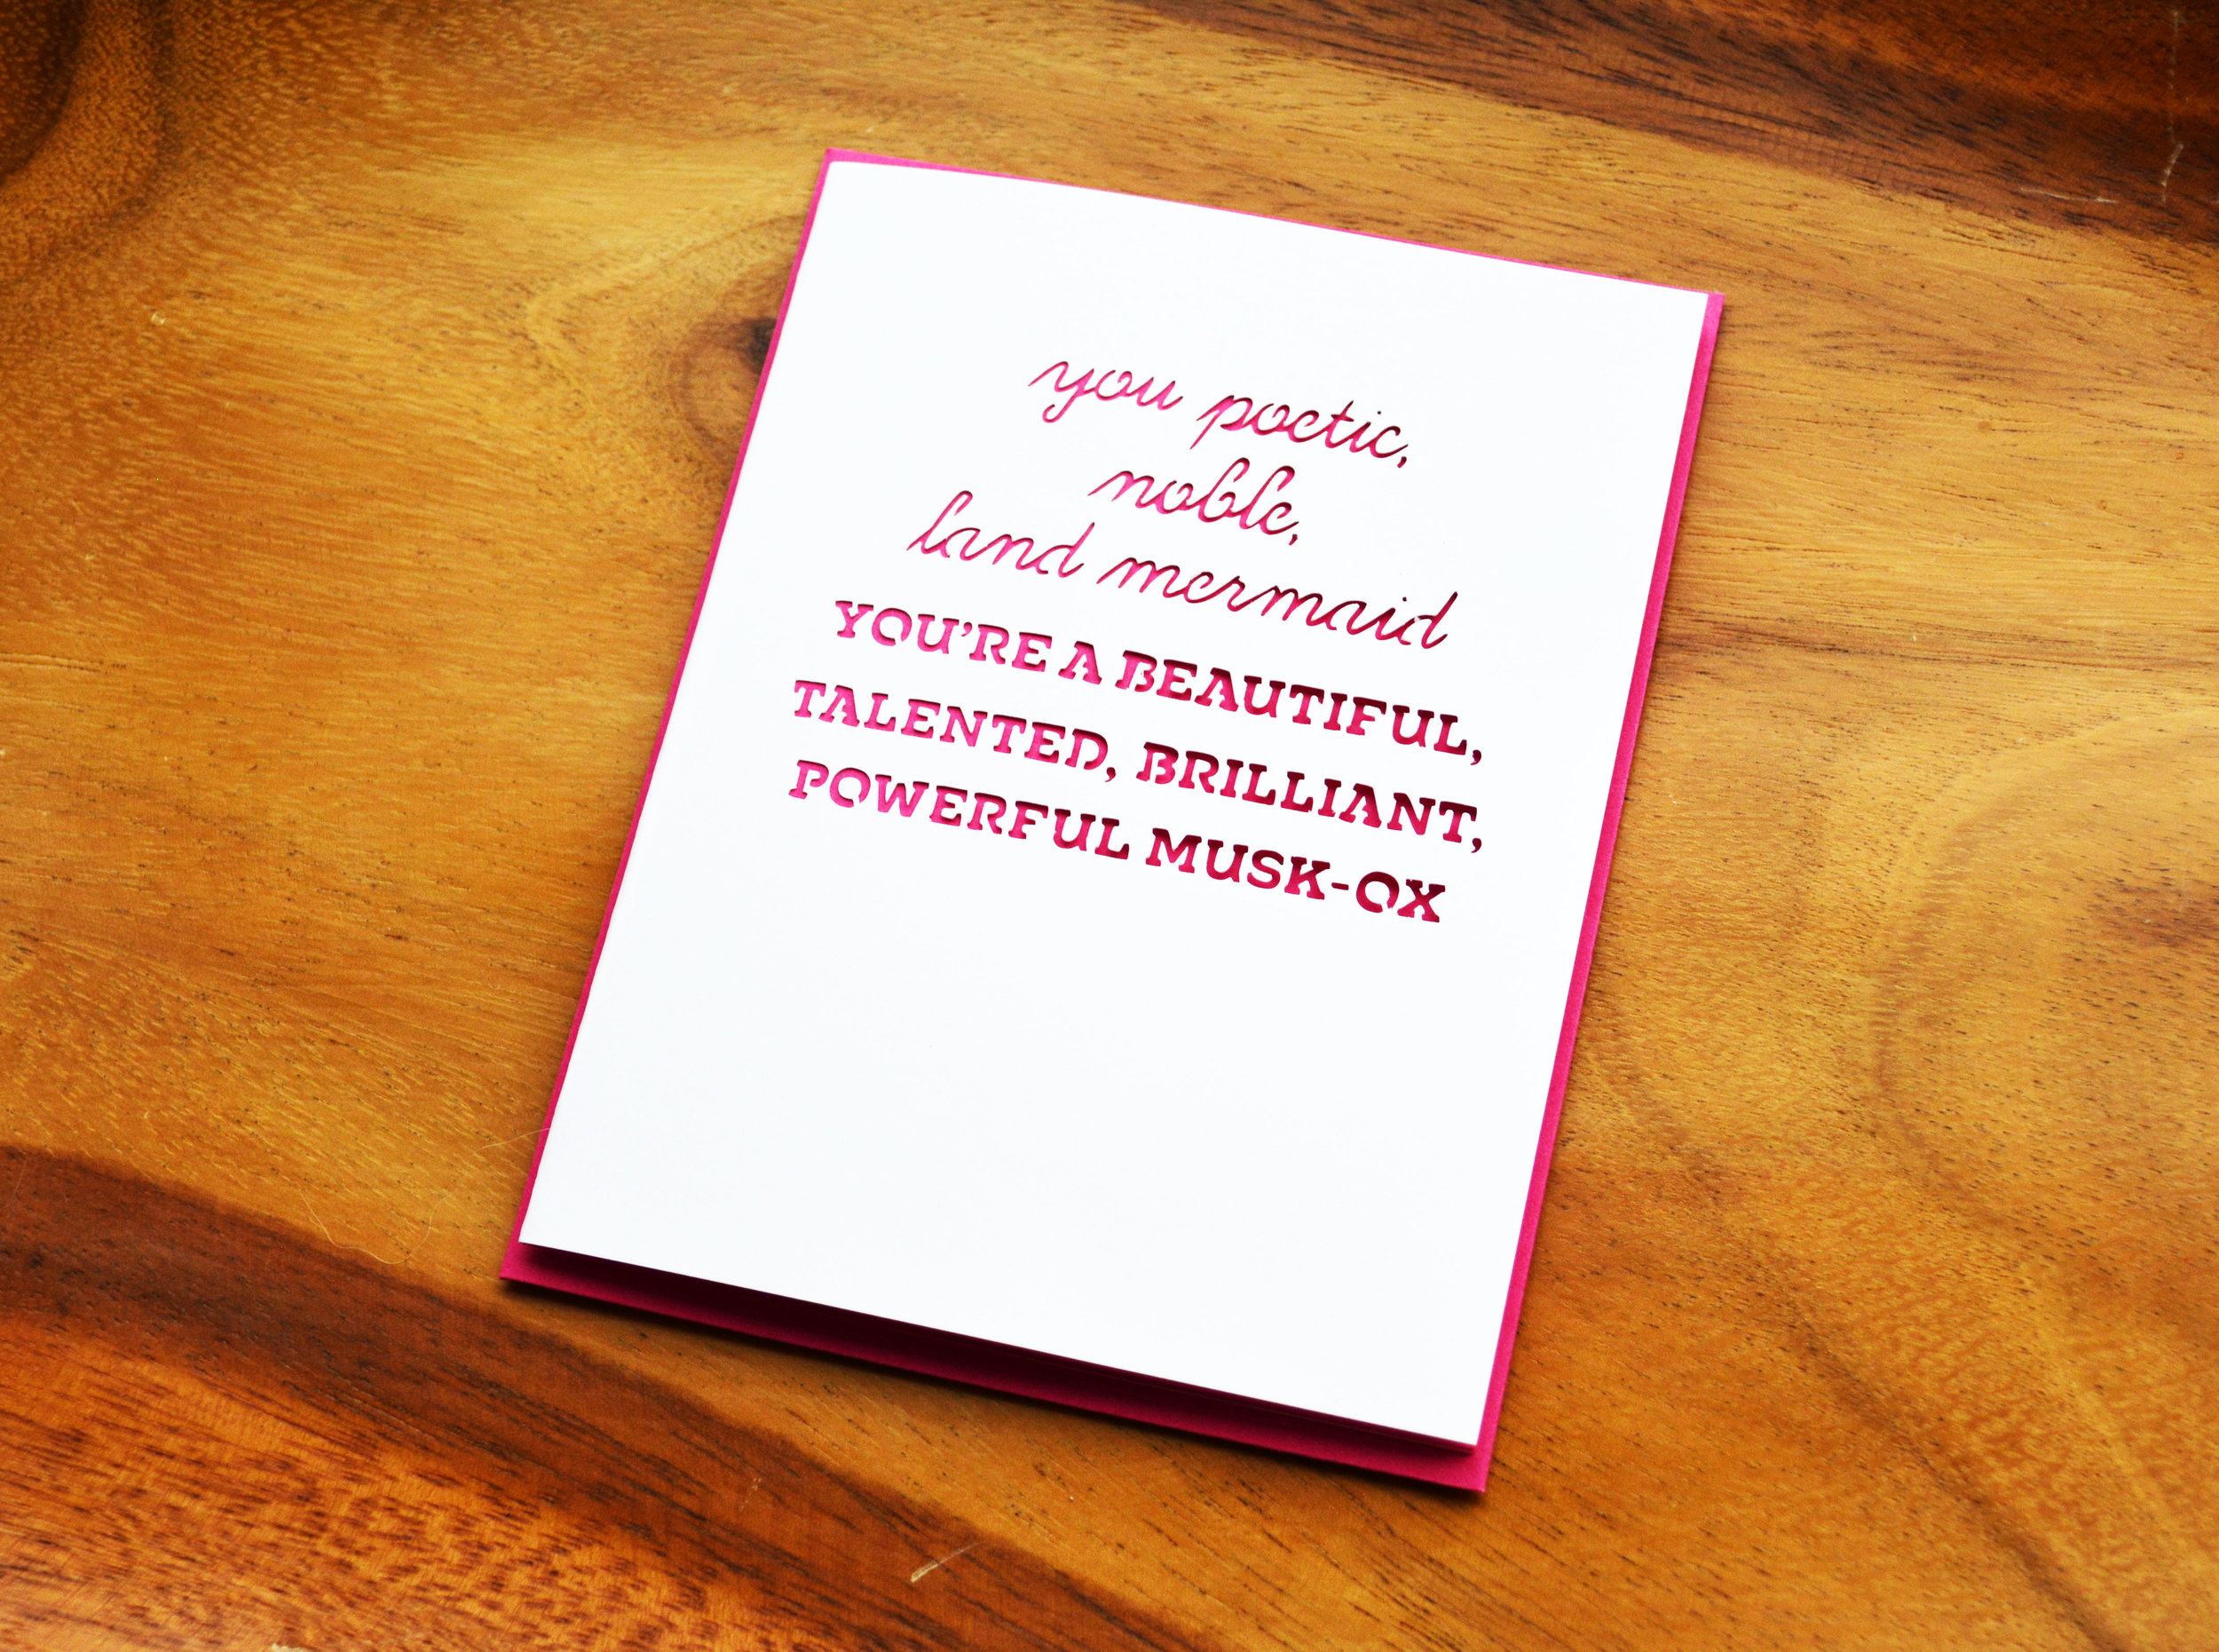 you poetic,
noble,
land mermaid
YOU'RE A BEAUTIFUL,
TALENTED, BRILLIANT,
POWERFUL MUSK-OX